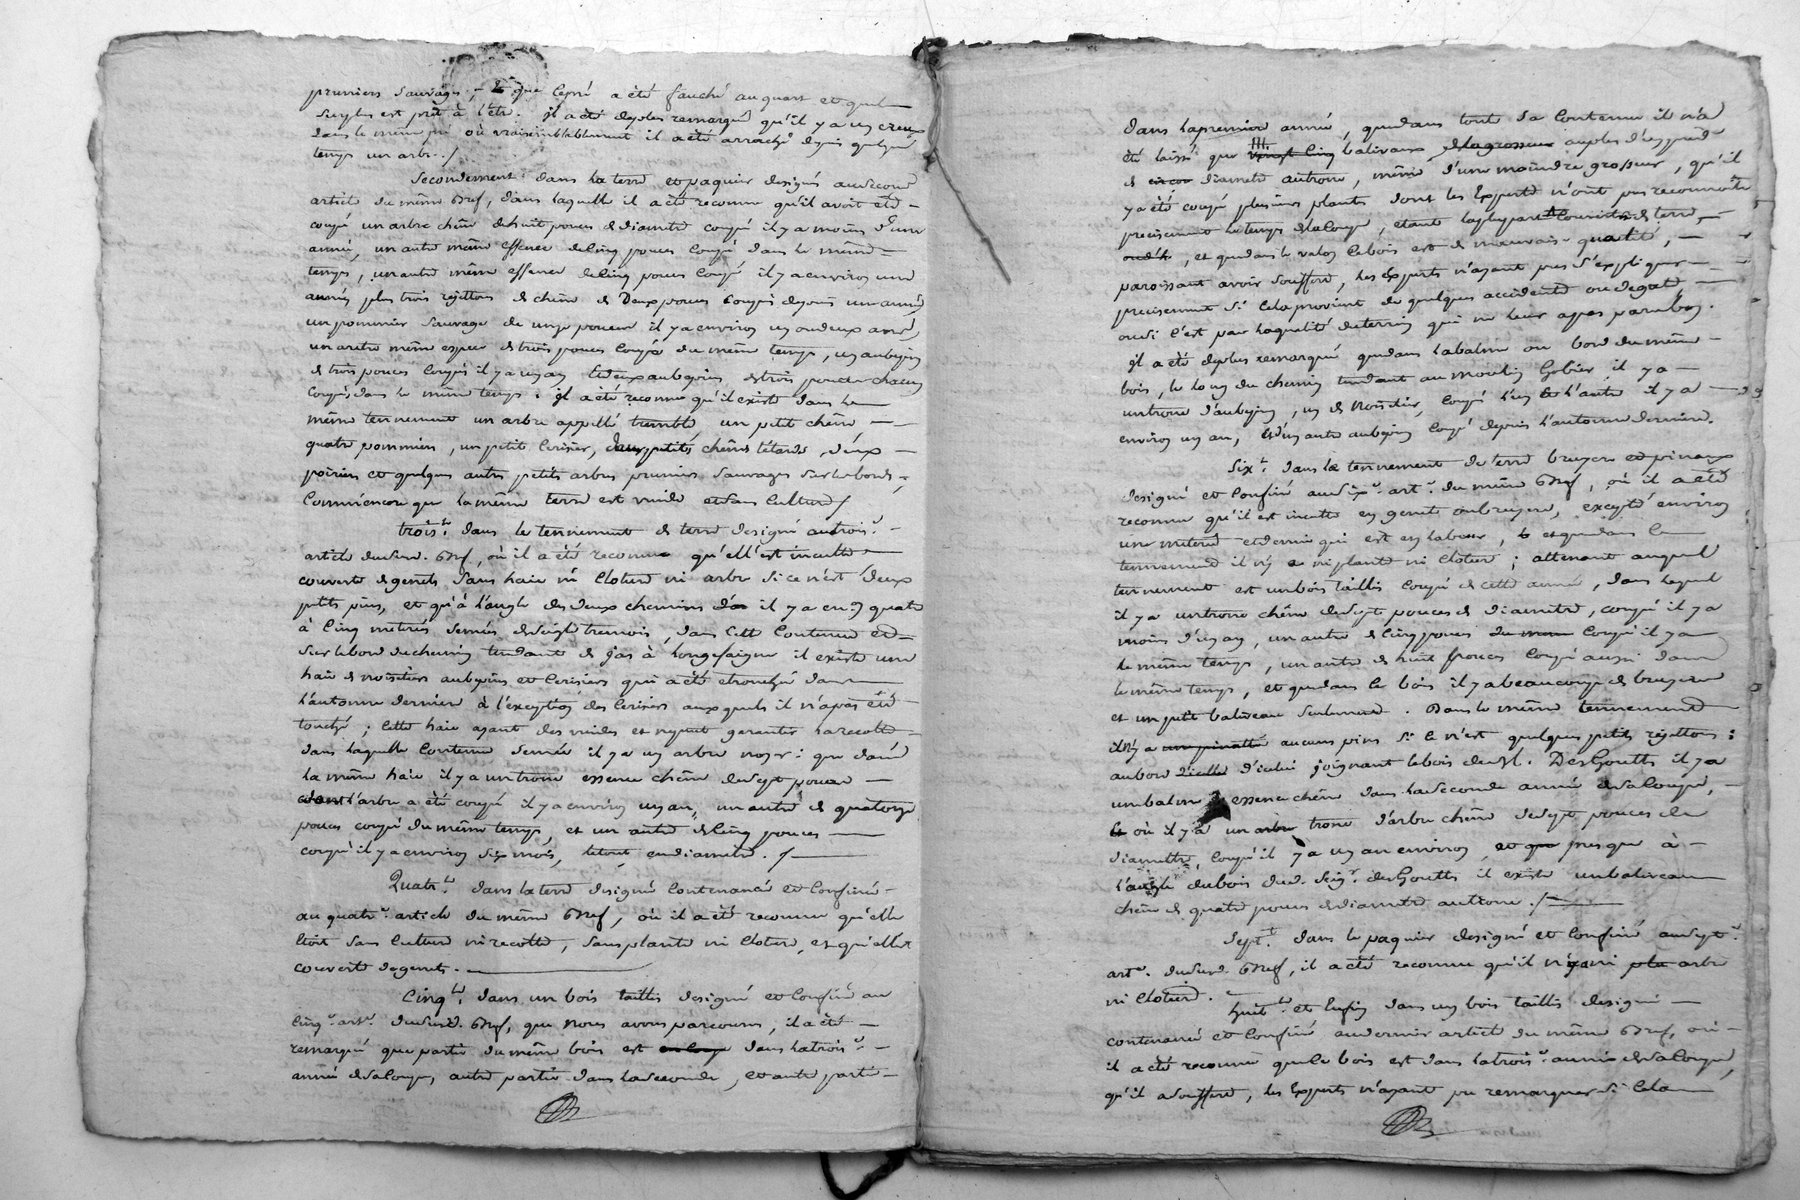 pruniers sauvages ; que le pré a été fauché au quart et que le
surplus est prêt à l'être. il a été de plus remarqué qu'il y a un creux
dans le même pré où vraisemblablement il a été arraché depuis quelque
temps un arbre ./
Secondement : dans la terre et paquier designés au second
article du même Bref, dans laquelle il a été reconnu qu'il avoit été
coupé un arbre chêne de huit pouces de diametre coupé il y a moins d'une
année, un autre même essence de cinq pouces coupé dans le même
temps, un autre même essence de cinq pouces coupé il y a environ une
année, plus trois rejettons de chêne de deux pouces coupés depuis une année,
un pommier sauvage de onze pouces il y a environ un ou deux ans,
un autre même espece de trois pouces coupé du même temps, un aubepin
de trois pouces coupé il y a un an et deux aubepins de trois pouces chacun
coupés dans le même temps : il a été reconnu qu'il existe dans le
même tennement un arbre appellé tremble, un petit chêne
quatre pommiers, un petit cerisier, deux petits chênes têtards, deux
poiriers et quelques autres petits arbres pruniers sauvages sur les bords,
comme encore que la même terre est vuide et sans culture /
trois.t dans le tennement de terre designé au trois.e
article dudit Bref, où il a été reconnu qu'elle est inculte
couverte de genets sans haie ni cloture ni arbre si ce n'est deux
petits pins, et qu'à l'angle des deux chemins il y a en.on quatre
à cinq metrées semées de seigle tremois, dans cette contenue et
sur le bord du chemin tendant de Jas à Longesaigne il existe une
haie de noisetiers aubepins et cerisiers qui a été etronchée dans
l'automne derniere à l'exception des cerisiers auxquels il n'a pas été
touché ; cette haie ayant des vuides et ne peut garantir la recolte
dans laquelle contenue semée il y a un arbre noyer : que dans
la même haie il y a un tronc essence chêne de sept pouces
dont l'arbre a été coupé il y a environ un an, un autre de quatorze
pouces coupé du même temps, et un autre de cinq pouces
coupé il y a environ six mois, le tout en diametre. /
Quatr.t dans la terre designée contenancée et confinée
au quatr.e article du même Bref, où il a été reconnu qu'elle
étoit sans culture ni recolte, sans plante ni cloture, et qu'elle est
couverte de genets.
Cinq.t dans un bois taillis designé et confiné au
cinq.e art.e dudit Bref, que nous avons parcouru, il a été
remarqué que partie du même bois est dans la trois.e
année de sa coupe, autre partie dans la seconde, et autre partie
dans la premiere année, que dans toute sa contenue il n'a
été laissé que balivaux de la grosseur au plus d'un pied
de diametre au tronc, même d'une moindre grosseur, qu'il
y a été coupé plusieurs plants dont les Experts n'ont pu reconnoître
precisement le temps de la coupe, étant la plupart couverts de terre,
et que dans le valon le bois est de mauvaise qualité,
paroissant avoir souffert, les Experts n'ayant pu s'expliquer
precisement si cela provient de quelques accidents ou degats,
ou si c'est par la qualité du terrein qui ne leur a pas paru bon.
Il a été de plus remarqué que dans la balme au bord du même
bois, le long du chemin tendant au moulin il y a
un tronc d'aubepin, un de noisetier, coupé l'un et l'autre il y a
environ un an, et d'un autre aubepin coupé depuis l'automne derniere.
Six.t dans le tennement de terre bruyere et pineaux
designé et confiné au six.e art.e du même Bref, où il a été
reconnu qu'il est inculte en genets ou bruyere, excepté environ
une meterée et demie qui est en labour, et que dans le
tennement il n'y a ni plante ni cloture ; attenant auquel
tennement est un bois taillis coupé de cette année, dans lequel
il y a un tronc chêne de sept pouces de diametre, coupé il y a
moins d'un an, un autre de cinq pouces coupé il y a
le même temps, un autre de huit pouces coupé aussi dans
le même temps, et que dans le bois il y a beaucoup de bruyere
et un petit baliveau seulement. Dans le même tennement
il n'y a aucuns pins si ce n'est quelques petits rejettons :
au bord d'icelui joignant le bois du S.r DesGoutts il y a
un baliveau essence chêne dans la seconde année de sa coupe,
où il y a un tronc d'arbre chêne de sept pouces de
diamettre, coupé il y a un an environ, et presque à
l'angle du bois dud. Seig.r desGoutts il existe un baliveau
chêne de quatre pouces de diametre au tronc ./
Sept.t dans le paquier designé et confiné au sept.e
art.e dudit Bref, il a été reconnu qu'il n'y a ni arbre
ni cloture.
huit.t et enfin dans un bois taillis designé
contenancé et confiné au dernier article du même Bref, où
il a été reconnu que le bois est dans la trois.e année de sa coupe,
qu'il a souffert, les Experts n'ayant pu remarquer si cela